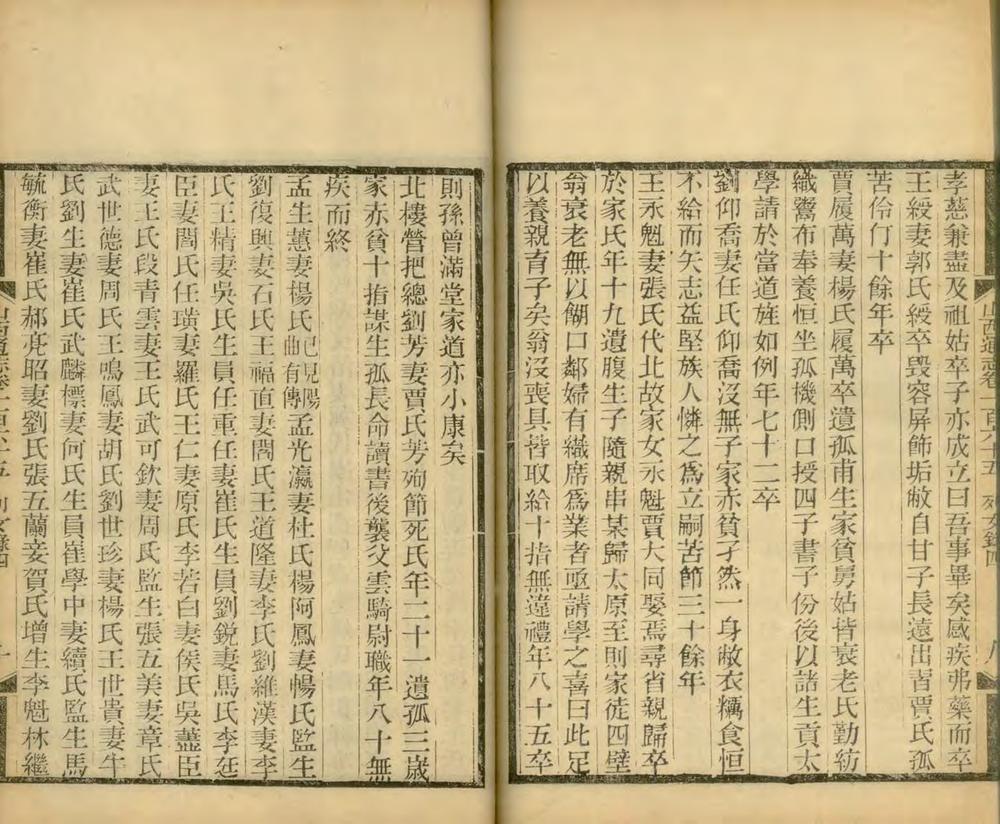 孝慈兼盡及祖姑卒子亦成立曰吾事畢矣感疾弗藥而卒
王綬妻郭氏綬卒毀容屏飾垢敝自甘子長遠出音賈氏孤
苦伶仃十餘年卒
賈履萬妻楊氏履萬卒遺孤甫生家貧舅姑皆衰老氏勤紡
織鬻布奉養恒坐孤機側口授四子書子份後以諸生貢太
學請於當道旌如例年七十二卒
劉仰喬妻任氏仰喬沒無子家赤貧孑然一身敝衣糲食恒
不給而矢志益堅族人憐之爲立嗣苦節三十餘年
王永魁妻張氏代北故家女永魁賈大同娶焉尋省親歸卒
於家氏年十九遺腹生子隨親串某歸太原至則家徒四壁
翁衰老無以餬口鄰婦有織席爲業者亟請學之喜曰此足
以養親育子矣翁沒喪具皆取給十指無違禮年八十五卒
則孫曾滿堂家道亦小康矣
北樓營把總劉芳妻賈氏芳殉節死氏年二十一遺孤三歲
家赤貧十指謀生孤長命讀書後襲父雲騎尉職年八十無
疾而終
孟生蕙妻楊氏已見陽曲有傳孟光瀛妻杜氏楊阿鳳妻暢氏監生
劉復興妻石氏王福直妻閻氏王道隆妻李氏劉維漢妻李
氏王精妻吳氏生員任重任妻崔氏生員劉銳妻馬氏李廷
臣妻閻氏任璜妻羅氏王仁妻原氏李若白妻侯氏吳藎臣
妻王氏段青雲妻王氏武可欽妻周氏監生張五美妻章氏
武世德妻周氏王鳴鳳妻胡氏劉世珍妻楊氏王世貴妻牛
氏劉生妻崔氏武麟標妻何氏生員崔學中妻續氏監生馬
毓衡妻崔氏郝亮昭妻劉氏張五蘭妾賀氏增生李魁林繼